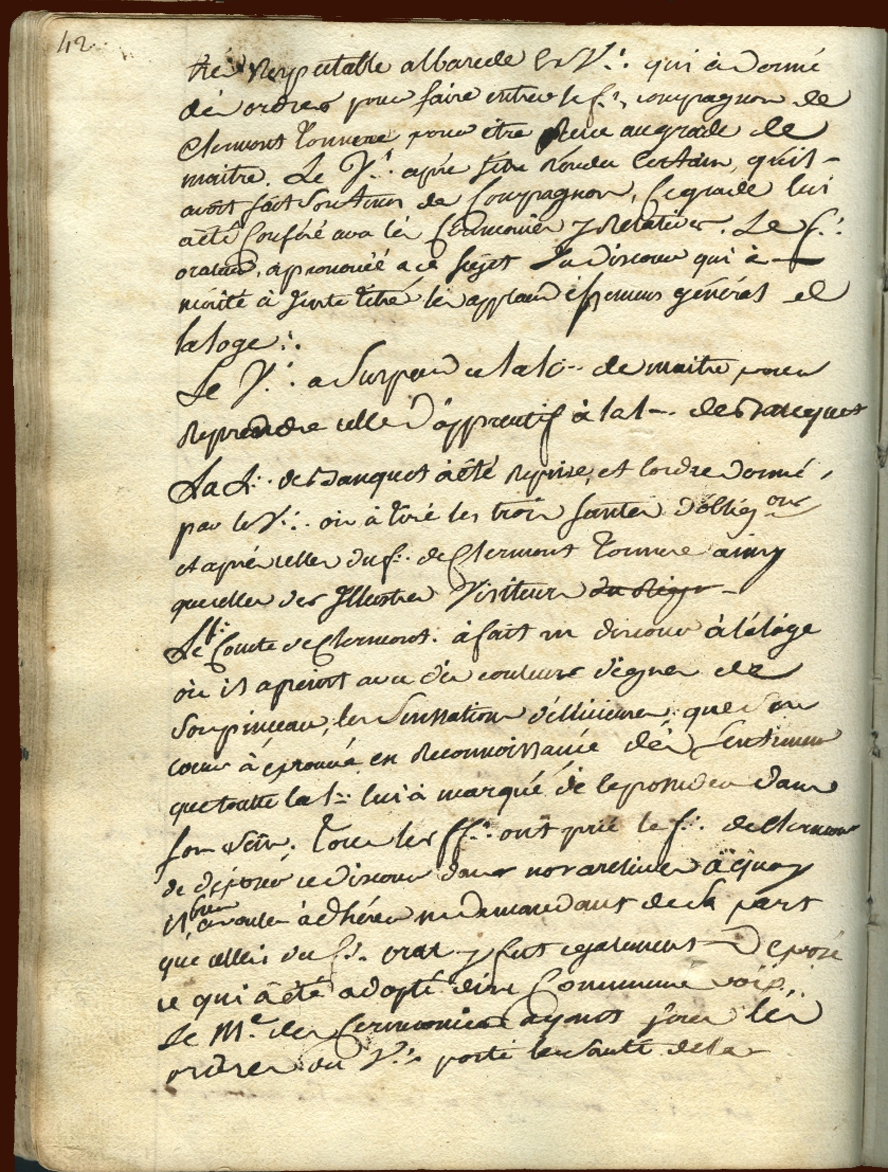 42.
très respectable albarede Ex V∴ qui à donné
dés ordres pour faire entrer le f∴ compagnon de
Clermont Tonnere, pour être Recu au grade de
maitre. Le V∴ aprés s'être Rendu Certain, qu'il
avoit fait son tems de Compagnon, Ce grade lui
a êté Conféré avec lés Cérémonies y Relatives. Le f∴
orateur, a prononcé a ce Sujet un discour qui à
mérité à juste titre les applaudissemens général de
la loge∴
Le V∴ a Suspendu la l∴ de maitre pour
Reprendre celle D'apprentif à la l∴ de Banquet
La L∴ de Banquet à êté Reprise, et l'ordre donné,
par le V∴ on à tiré les trois santés d'oblig.ons
et aprés celles du f∴ de Clermont Tonnere ainsy
que celles des Illustres Visiteurs
Le f∴ Comte de Clermont. à fait un discour à l'éloge
où il a peint avec dés couleurs dignes de
son pinceau, les Senssations délicieuses, que son
coeur à éprouvé en Reconnoissance dés Sentimens
que toutte la l∴ lui à marqué de le posseder dans
son sein. Tous les ff∴ ont prié le f∴ de Clermont
de déposer ce discour dans nos archives à quoy
il a bien voulu àdhérer en demandant de sa part
que celui du f∴ orat y fut egalement Déposé
ce qui à êté adopté d'une Commune voix.
Le M.e des Ceremonies ayant par les
ordres du V∴ porté les Santé de la